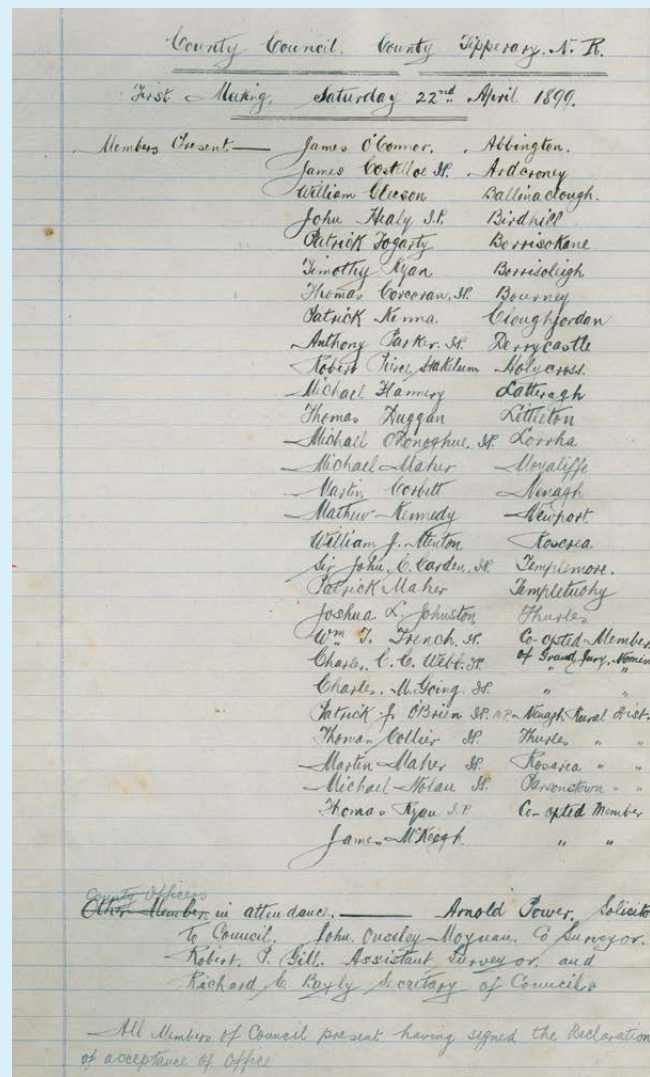 County Council. County Tipperary. N. R.
First Meeting, Saturday 22nd April 1899.
Members Present — James O'Connor. Abbington.
James Costelloe JP. Ardcroney
William Gleeson Ballinaclough.
John Healy J.P. Birdhill
Patrick Fogarty Borrisokane
Timothy Ryan Borrisoleigh
Thomas Corcoran. JP. Bourney
Patrick Kenna. Cloughjordan
Anthony Parker. JP. Derrycastle
Robert Pierce Stakelum Holycross.
Michael Flannery Latteragh
Thomas Duggan Littleton
Michael O'Donoghue. JP. Lorrha
Michael Maher Moyaliffe
Martin Corbett Nenagh
Mathew Kennedy Newport.
William J. Menton. Roscrea.
Sir John. C. Carden. JP. Templemore.
Patrick Maher Templetuohy
Joshua. L. Johnston Thurles
Wm T. Trench. JP. Co-opted Member
Charles. C. C. Webb. JP. of Grand Jury. Nomin
Charles. M. Going. JP. " "
Patrick J. O'Brien JP. M.P. Nenagh Rural Dist.
Thomas Collier JP. Thurles " "
Martin Maher JP. Roscrea " "
Michael Nolan JP. Parsonstown " "
Thomas Ryan J.P. Co-opted Member
James McKeogh. " "
County Officers
Other Member in attendance. — Arnold Power. Solicito
to Council. John. Ousley Moynan. Co Surveyor.
Robert. P. Gill. Assistant Surveyor. and
Richard Secretary of Council.
All Members of Council present having signed the Declaration
of acceptance of Office